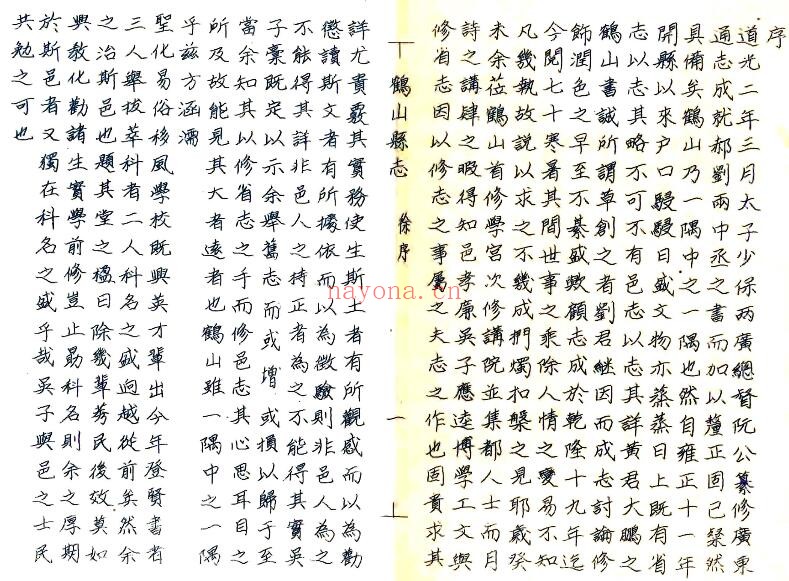 序
道光二年三月太子少保两廣總督阮公纂修廣東
通志成就郝劉兩中丞之書而加以釐正固已粲然
具備矣鶴山乃一隅中之一隅也然自雍正十一年
開縣以來户口駸駸日盛文物亦蒸蒸日上既有省
志以志其略不可不有邑志以志其詳黃君大鵬之
鶴山書誠所謂草創之者劉君継因而成志討論修
飾潤色之早至不綦盛歟顧志成於乾隆十九年迄
今閱七十寒暑其間世事之乘除人情之變易不知
凡幾執故說以求之不幾成捫燭扣槃之見耶歲癸
未余莅鶴山首修學宮次修講院並集都人士而月
詩之講肄之暇得知邑孝廉吳子應逵博學工文與
修省志因以修志之事属之夫志之作也固貴求其
鶴山縣志
徐序
一
詳尤貴覈其實務使生斯土者有所觀感而以為勸
懲讀斯文者有所據依而以為徵驗則非邑人為之
不能得其詳非邑人之持正者為之不能得其實吳
子稾既定以示余舉舊志而或增或損以歸于至
當余知其以修省志之手而修邑志其心思耳目之
所及故能見其大者遠者也鶴山雖一隅中之一隅
乎兹方涵濡
聖化易俗移風學校既興英才輩出今年登賢書者
三人舉拔萃科者二人科名之盛迥越從前矣然余
之治斯邑也題其堂之楹曰除幾輩莠民後效莫如
興教化勸諸生實學前修豈止勗科名則余之厚期
於斯邑者又獨在科名之盛乎哉吳子與邑之士民
共勉之可也
nayona.cn